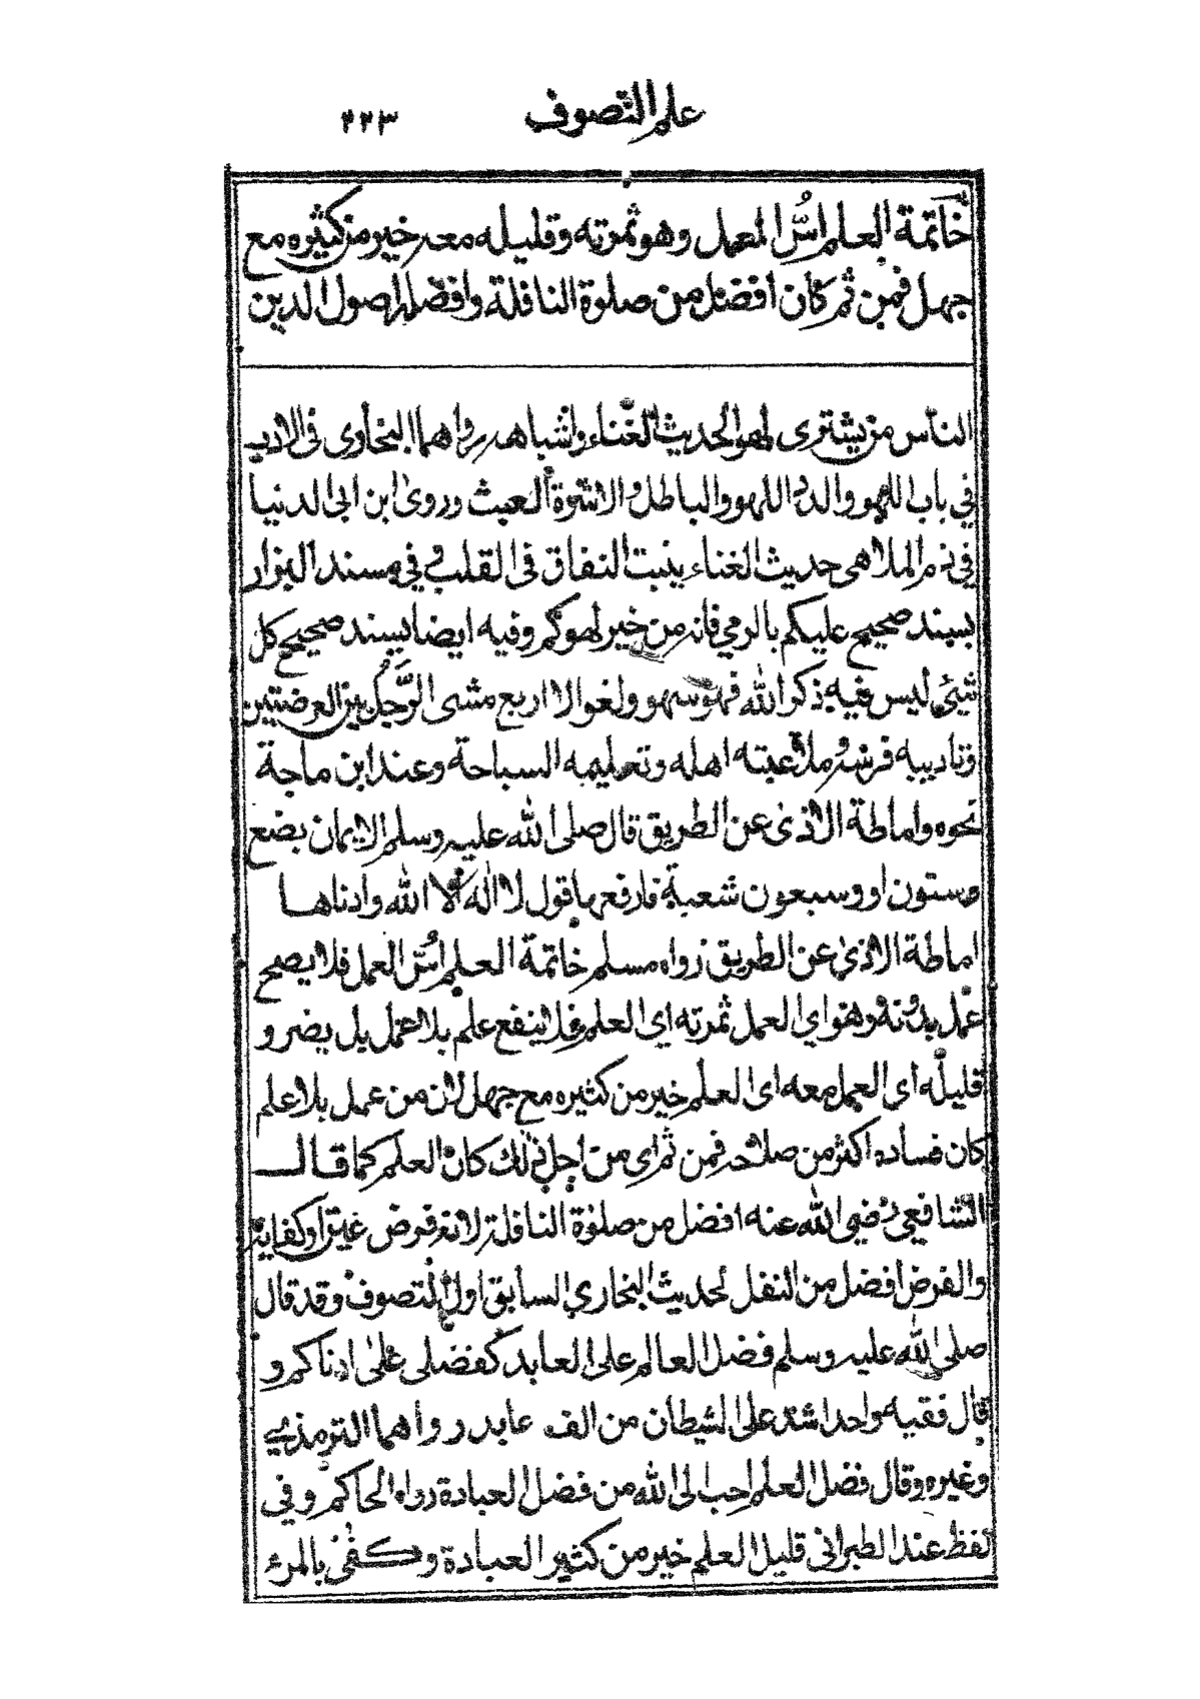 علم التصوف ٢٢٣
خاتمة العلم اسّ العمل وهو ثمرته وقليله معه خير من كثيره مع
جهل فمن ثم كان افضل من صلوة النافلة وافضله اصول الدين
الناس من يشترى لهو الحديث الغناء واشباهه رواهما البخاوى فى الادب
في باب اللهو والدد اللهو والباطل والاشرة العبث وروىٰ ابن ابى الدنيا
في ذم الملاهى حديث الغناء ينبت النفاق فى القلب وفي مسند البزار
بسند صحيح عليكم بالرمي فانه من خير لهوكم وفيه ايضا بسند صحيح كل
شئ ليس فيه ذكر الله فهو سهو ولغو الا اربع مشى الرَّجُل بين العرضتين
وتاديبه فرسه وملاعبته اهله وتعليمه السباحة وعند ابن ماجة
نحوه واماطة الاذىٰ عن الطريق قال صلى الله عليه وسلم الايمان بضع
وستون او وسبعون شعبة فارفعها قول لا اله الا الله وادناها
اماطة الاذىٰ عن الطريق رواه مسلم خاتمة العلم اسّ العمل فلا يصح
عمل بدونه وهو اي العمل ثمرته اي العلم فلا ينفع علم بلا عمل بل يضر و
قليله اى العمل معه اى العلم خير من كثيره مع جهل لان من عمل بلا علم
كان فساده اكثر من صلاحه فمن ثم اى من اجل ذلك كان العلم كما قال
الشافعي رضى الله عنه افضل من صلوٰة النافلة لانه فرض عين او كفاية
والفرض افضل من النفل لحديث البخاري السابق اول التصوف وقد قال
صلى الله عليه وسلم فضل العالم على العابد كفضلى علىٰ ادناكم و
قال فقيه واحد اشد على الشيطان من الف عابد رواهما الترمذي
وغيره وقال فضل العلم احب الى الله من فضل العبادة رواه الحاكم وفي
لفظ عند الطبرانى قليل العلم خير من كثير العبادة وكفىٰ بالمرء